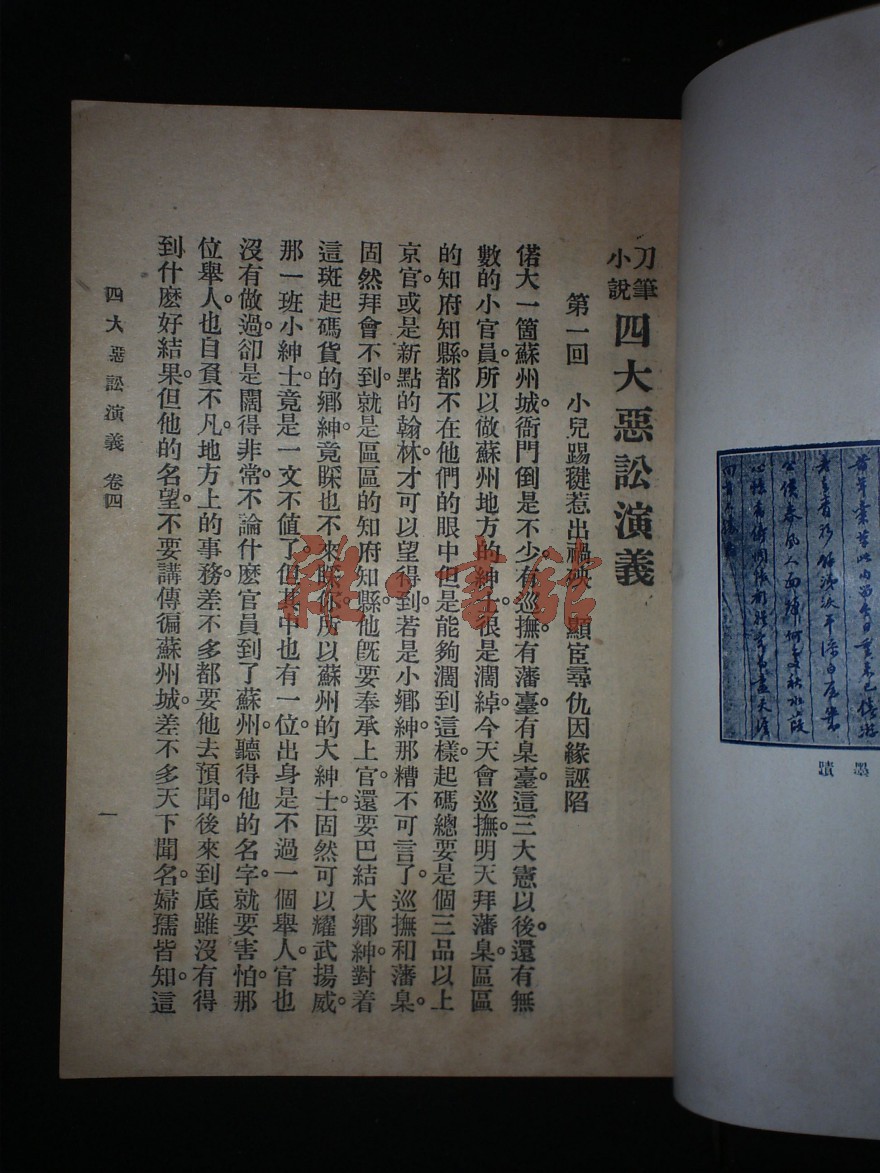 刀筆小說 四大惡訟演義
第一回 小兒踢毽惹出禍殃 顯宦尋仇因緣誣陷
偌大一箇蘇州城。衙門倒是不少。有巡撫有藩臺。有臬臺。這三大憲以後。還有無
數的小官員。所以做蘇州地方的紳士。很是濶綽。今天會巡撫。明天拜藩臬。區區
的知府知縣。都不在他們的眼中。但是能夠濶到這樣。起碼總要是個三品以上
京官。或是新點的翰林。才可以望得到。若是小鄉紳。那糟不可言了。巡撫和藩臬。
固然拜會不到。就是區區的知府知縣。他旣要奉承上官。還要巴結大鄉紳。對着
這班起碼貨的鄉紳。竟睬也不來睬你。所以蘇州的大紳士。固然可以耀武揚威。
那一班小紳士。竟是一文不値了。但其中也有一位。出身是不過一個舉人。官也
沒有做過。卻是闊得非常。不論什麽官員到了蘇州。聽得他的名字。就要害怕。那
位舉人。也自負不凡。地方上的事務。差不多都要他去預聞。後來到底雖沒有得
到什麽好結果。但他的名望。不要講傳徧蘇州城。差不多天下聞名。婦孺皆知。這
四大惡訟演義 卷四
一
墨蹟
雜·書館